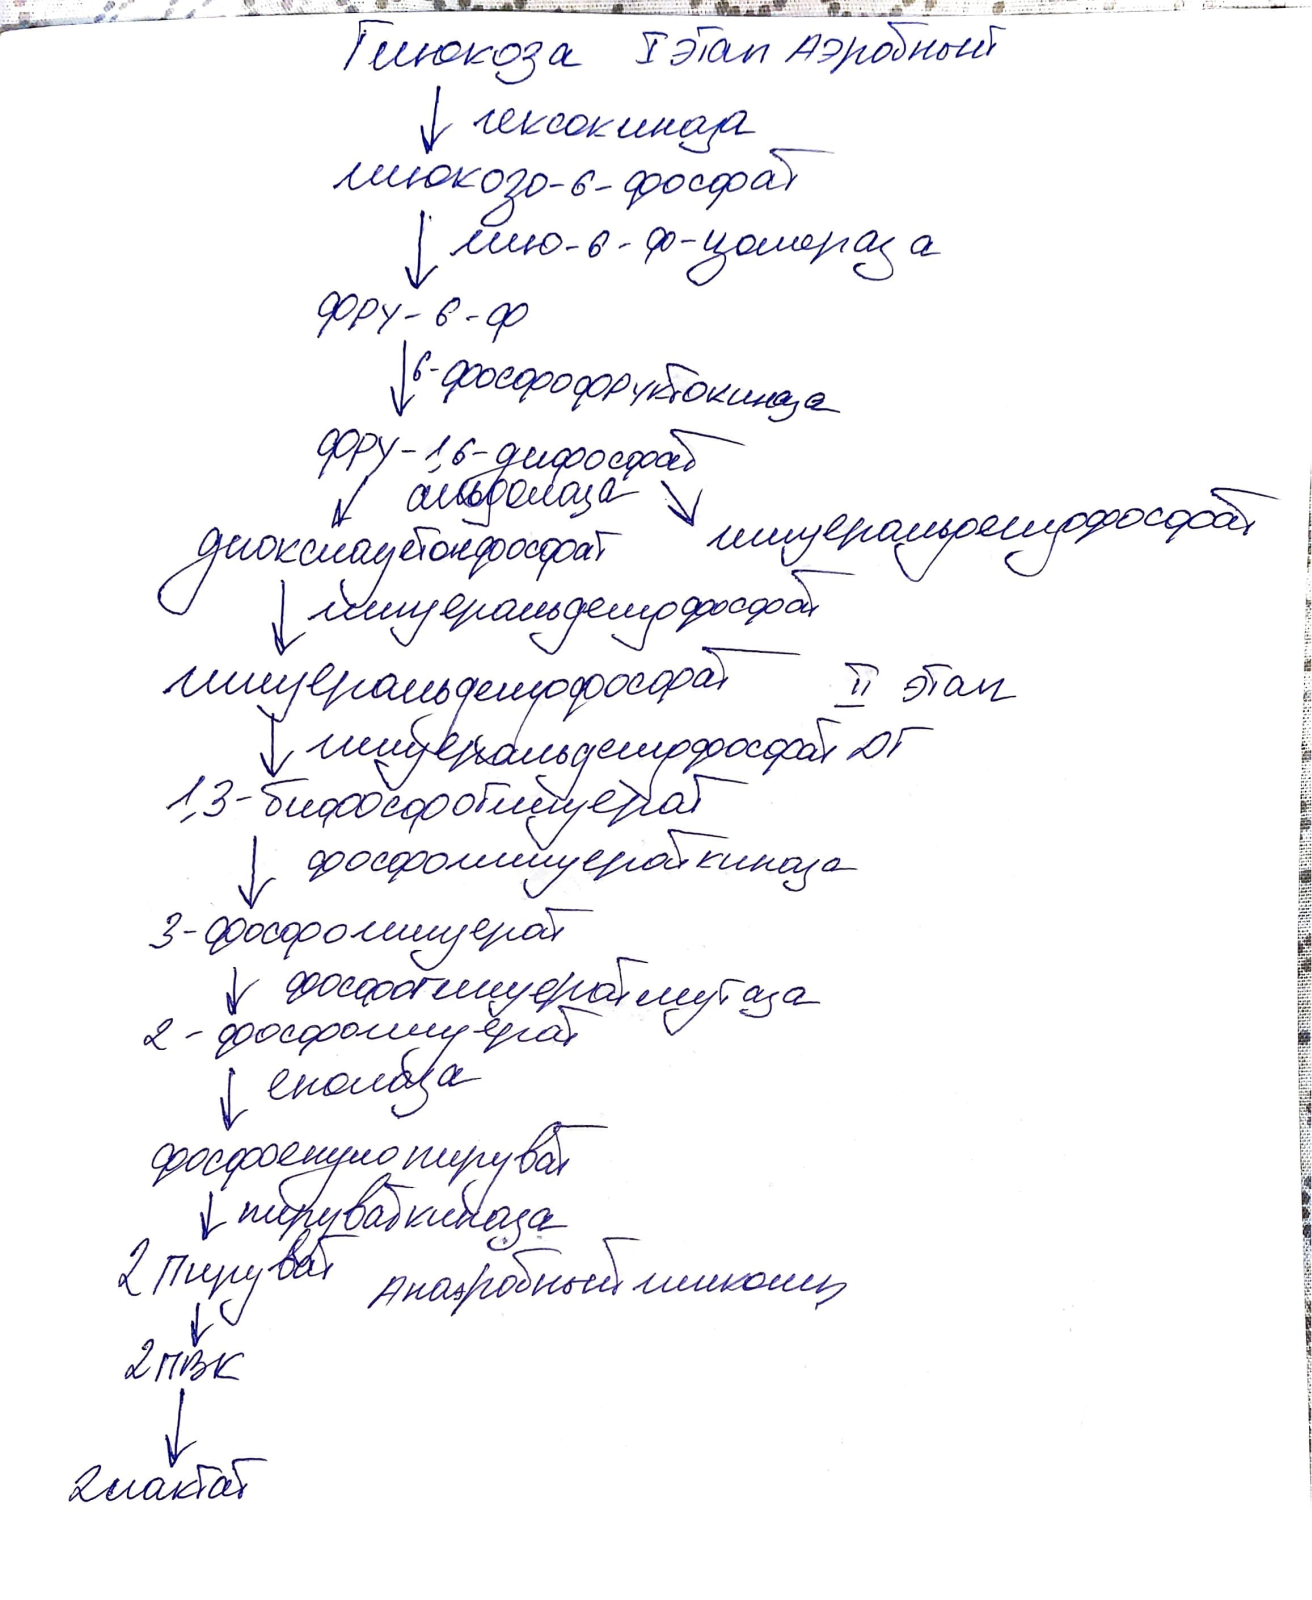 Глюкоза I этап Аэробный
↓ гексокиназа
глюкозо-6-фосфат
↓ глю-6-ф-изомераза
фру-6-ф
↓ 6-фосфофруктокиназа
фру-1,6-дифосфат
↙ альдолаза ↘
диоксиацетонфосфат глицеральдегидфосфат
↓ глицеральдегидфосфат
глицеральдегидфосфат II этап
↓ глицеральдегидфосфат ДГ
1,3-бифосфоглицерат
↓ фосфоглицераткиназа
3-фосфоглицерат
↓ фосфоглицератмутаза
2-фосфоглицерат
↓ енолаза
фосфоенулопируват
↓ пируваткиназа
2 Пируват Анаэробный гликолиз
↓
2 ПВК
↓
2 лактат